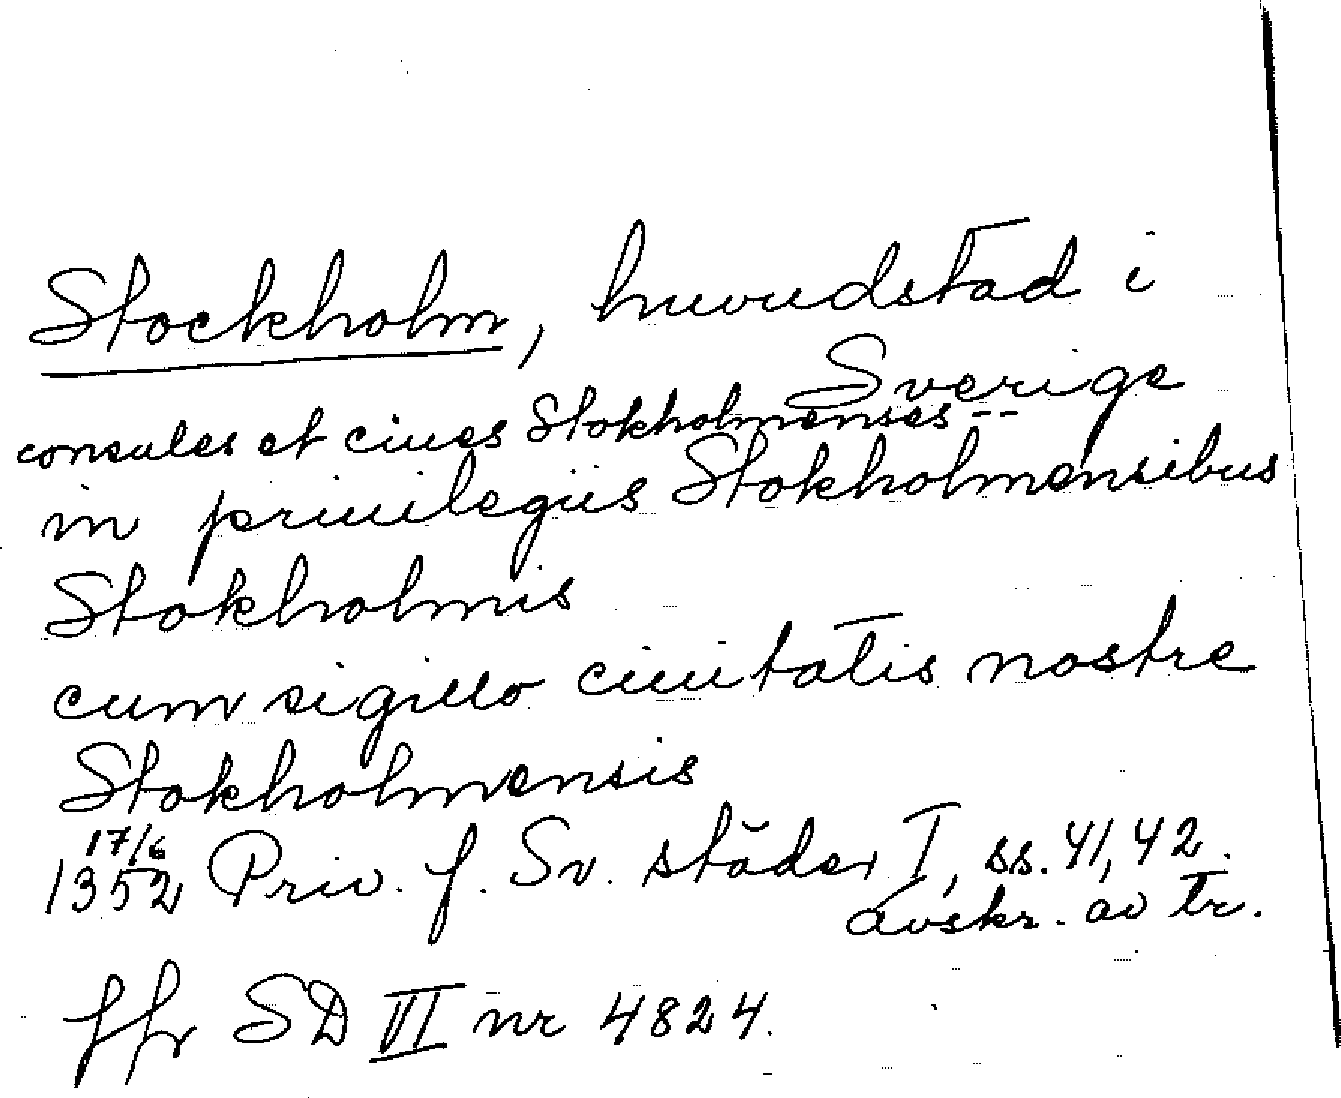 Stockholm, huvudstad i
Sverige
consules et ciues Stokholmenses --
in priuilegiis Stokholmensibus
Stokholmis
cum sigillo ciuitatis nostre
Stokholmensis
17/6
1352 Priv. f. Sv. städer I, ss. 41, 42.
avskr. av tr.
ffr SD VI nr 4824.